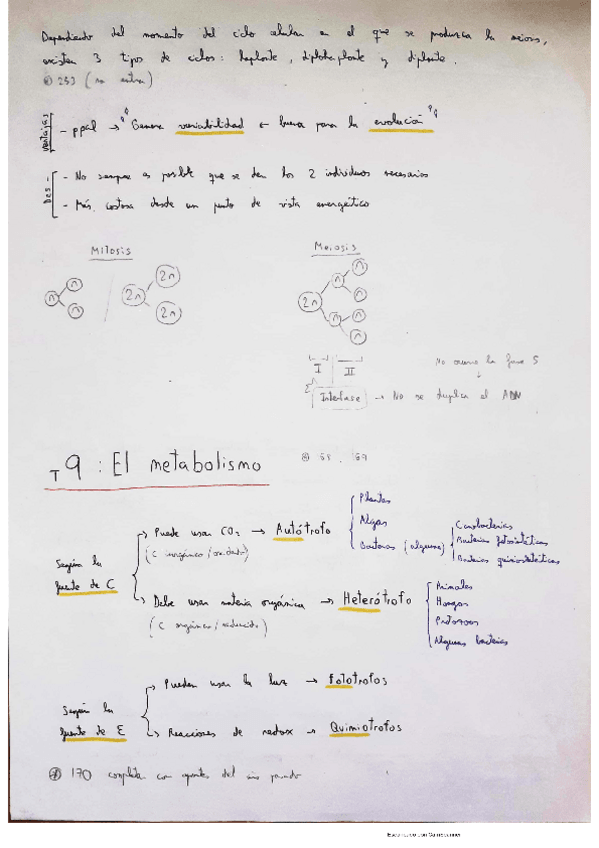 Dependiendo del momento del ciclo celular en el que se produzca la meiosis,
existen 3 tipos de ciclos: haplonte, diplohaplonte y diplonte.
253 (no entra)
Ventajas
- ppal → "Genera variabilidad ← buena para la evolución"
Des.
- No siempre es posible que se den los 2 individuos necesarios
- Más costosa desde un punto de vista energético
Mitosis
n n n
2n 2n 2n
Meiosis
2n n n n n n n
I II
Interfase → No se duplica el ADN
No ocurre la fase S
T9: El metabolismo
168, 169
Según la fuente de C
Puede usar CO2 → Autótrofo
(C inorgánico/oxidado)
Plantas
Algas
Bacterias (algunas)
Cianobacterias
Bacterias fotosintéticas
Bacterias quimiosintéticas
Debe usar materia orgánica → Heterótrofo
(C orgánico/reducido)
Animales
Hongos
Protozoos
Algunas bacterias
Según la fuente de E
Pueden usar la luz → Fototrofos
Reacciones de redox → Quimiotrofos
170 completa con apuntes del año pasado
Escaneado con CamScanner